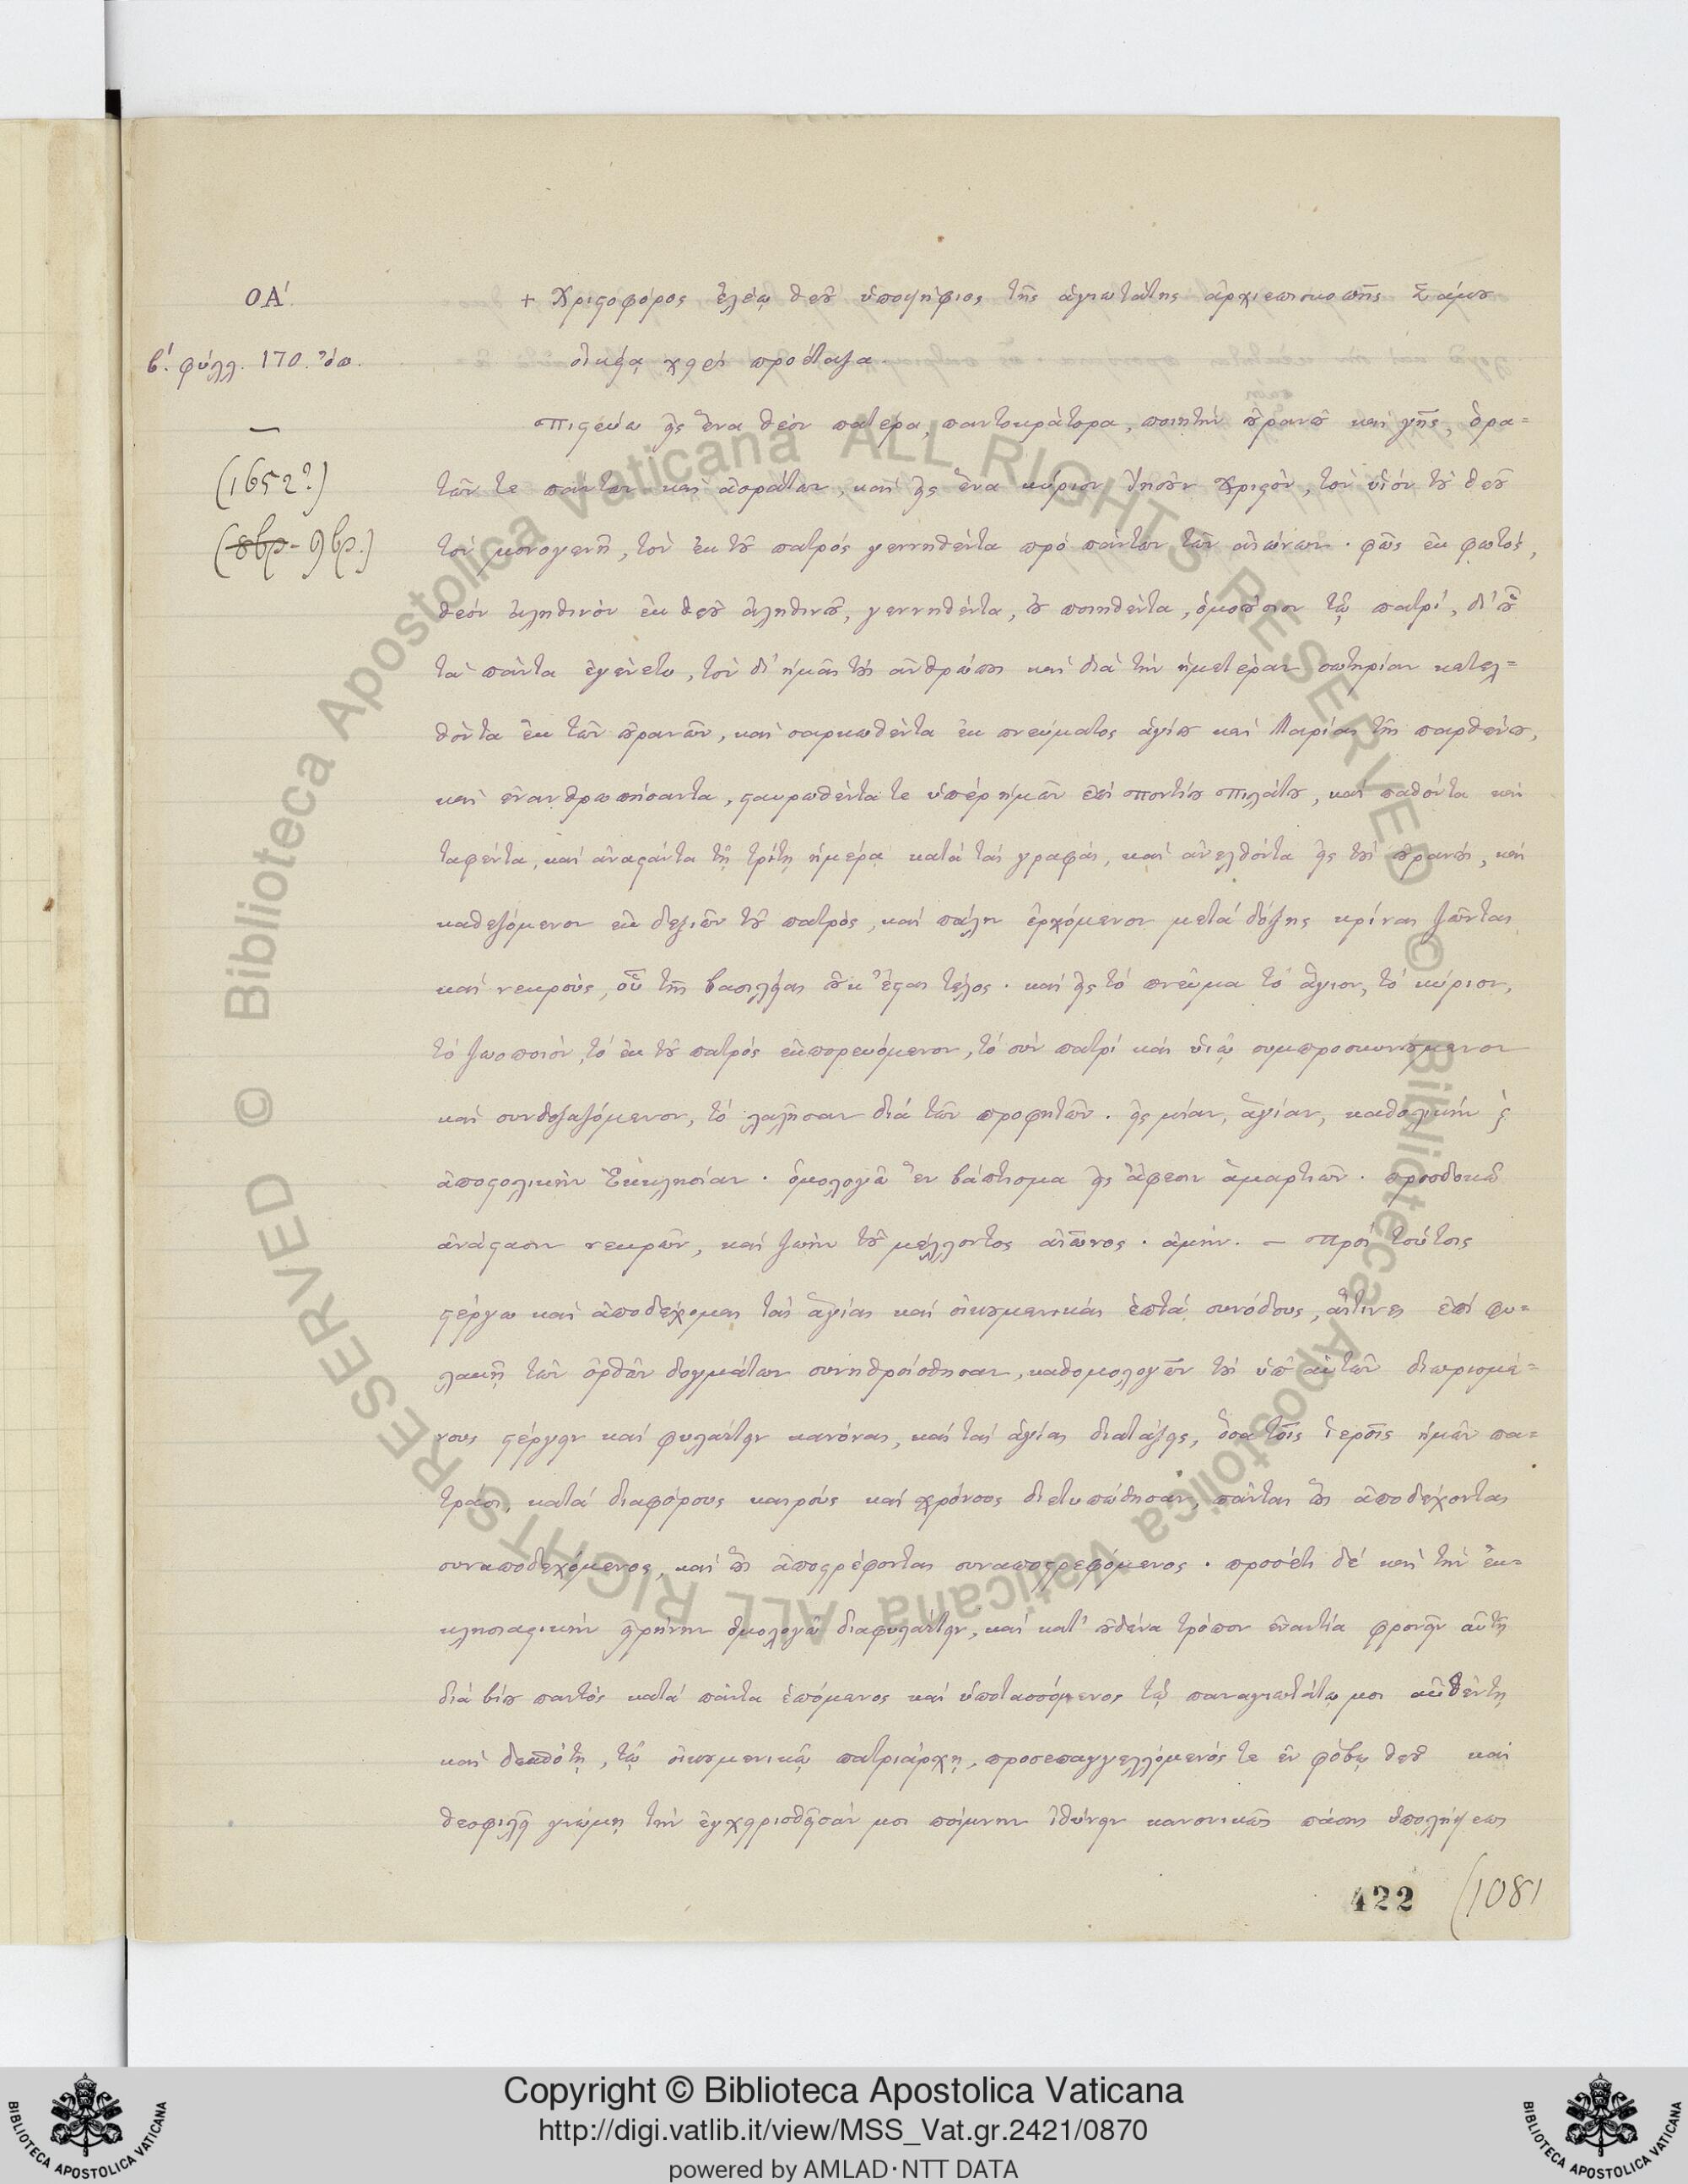 ΟΑ΄
β΄. φύλλ. 170. ὄπ.
(1652?)
+ Χριστοφόρος ἐλέῳ θεοῦ ὑποψήφιος τῆς ἁγιωτάτης ἀρχιεπισκοπῆς Σάμου
οἰκείᾳ χειρί προέταξα.
Πιστεύω εἰς ἕνα θεόν πατέρα, παντοκράτορα, ποιητήν οὐρανοῦ καί γῆς, ὁρα=
τῶν τε πάντων καί ἀοράτων, καί εἰς ἕνα κύριον Ἰησοῦν Χριστὸν, τόν υἱόν τοῦ θεοῦ
τόν μονογενῆ, τόν ἐκ τοῦ πατρός γεννηθέντα πρό πάντων τῶν αἰώνων · φῶς ἐκ φωτός,
θεόν ἀληθινόν ἐκ θεοῦ ἀληθινοῦ, γεννηθέντα, οὐ ποιηθέντα, ὁμοούσιον τῷ πατρί, δι' οὗ
τά πάντα ἐγένετο, τόν δι' ἡμᾶς τούς ἀνθρώπους καί διά τήν ἡμετέραν σωτηρίαν κατελ=
θόντα ἐκ τῶν οὐρανῶν, καί σαρκωθέντα ἐκ πνεύματος ἁγίου καί Μαρίας τῆς παρθένου,
καί ἐνανθρωπήσαντα, σταυρωθέντα τε ὑπέρ ἡμῶν ἐπί Ποντίου Πιλάτου, καί παθόντα καί
ταφέντα, καί ἀναστάντα τῇ τρίτῃ ἡμέρᾳ κατά τάς γραφάς, καί ἀνελθόντα εἰς τούς οὐρανούς, καί
καθεζόμενον ἐκ δεξιῶν τοῦ πατρός, καί πάλιν ἐρχόμενον μετά δόξης κρίναι ζῶντας
καί νεκρούς, οὗ τῆς βασιλείας οὐκ ἔσται τέλος · καί εἰς τό πνεῦμα τό ἅγιον, τό κύριον,
τό ζωοποιόν, τό ἐκ τοῦ πατρός ἐκπορευόμενον, τό σύν πατρί καί υἱῷ συμπροσκυνούμενον
καί συνδοξαζόμενον, τό λαλῆσαν διά τῶν προφητῶν. εἰς μίαν, ἁγίαν, καθολικήν ϛ
ἀποστολικήν Ἐκκλησίαν · ὁμολογῶ ἕν βάπτισμα εἰς ἄφεσιν ἁμαρτιῶν. προσδοκῶ
ἀνάστασιν νεκρῶν, καί ζωήν τοῦ μέλλοντος αἰῶνος · ἀμήν. — Πρός τούτοις
στέργω καί ἀποδέχομαι τάς ἁγίας καί οἰκουμενικάς ἑπτά συνόδους, αἵτινες ἐπί φυ=
λακῇ τῶν ὀρθῶν δογμάτων συνηθροίσθησαν, καθομολογῶν τούς ὑπ' αὐτῶν διωρισμέ=
νους στέργειν καί φυλάττειν κανόνας, καί τάς ἁγίας διατάξεις, ὅσα τοῖς ἱεροῖς ἡμῶν πα=
τράσι, κατά διαφόρους καιρούς καί χρόνους διετυπώθησαν, πάντας οὓς ἀποδέχονται
συναποδεχόμενος, καί οὓς ἀποστρέφονται συναποστρεφόμενος. προσέτι δέ καί τήν ἐκ=
κλησιαστικήν εἰρήνην ὁμολογῶ διαφυλάττειν, καί κατ' οὐδένα τρόπον ἐναντία φρονεῖν αὐτῇ
διά βίου παντός κατά πάντα ἑπόμενος καί ὑποτασσόμενος τῷ παναγιωτάτῳ μοι αὐθέντῃ
καί δεσπότῃ, τῷ οἰκουμενικῷ πατριάρχῃ, προσεπαγγελλόμενός τε ἐν φόβῳ θεοῦ καί
θεοφιλεῖ γνώμῃ τήν ἐγχειρισθεῖσάν μοι ποίμνην ἰθύνειν κανονικῶς πάσης ὑπολήψεως
422 (1081
Copyright © Biblioteca Apostolica Vaticana
http://digi.vatlib.it/view/MSS_Vat.gr.2421/0870
powered by AMLAD·NTT DATA